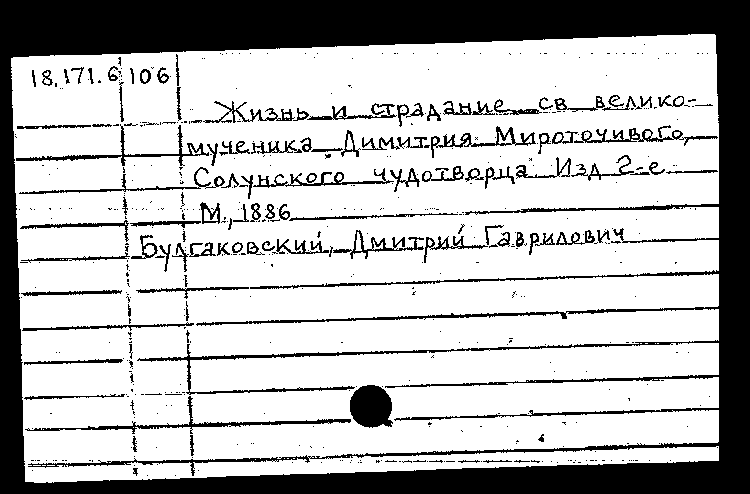 18.171.6 106
Жизнь и страдание св велико-
мученика Димитрия Мироточивого,
Солунского чудотворца Изд 2-е
М., 1886
Булгаковский, Дмитрий Гаврилович